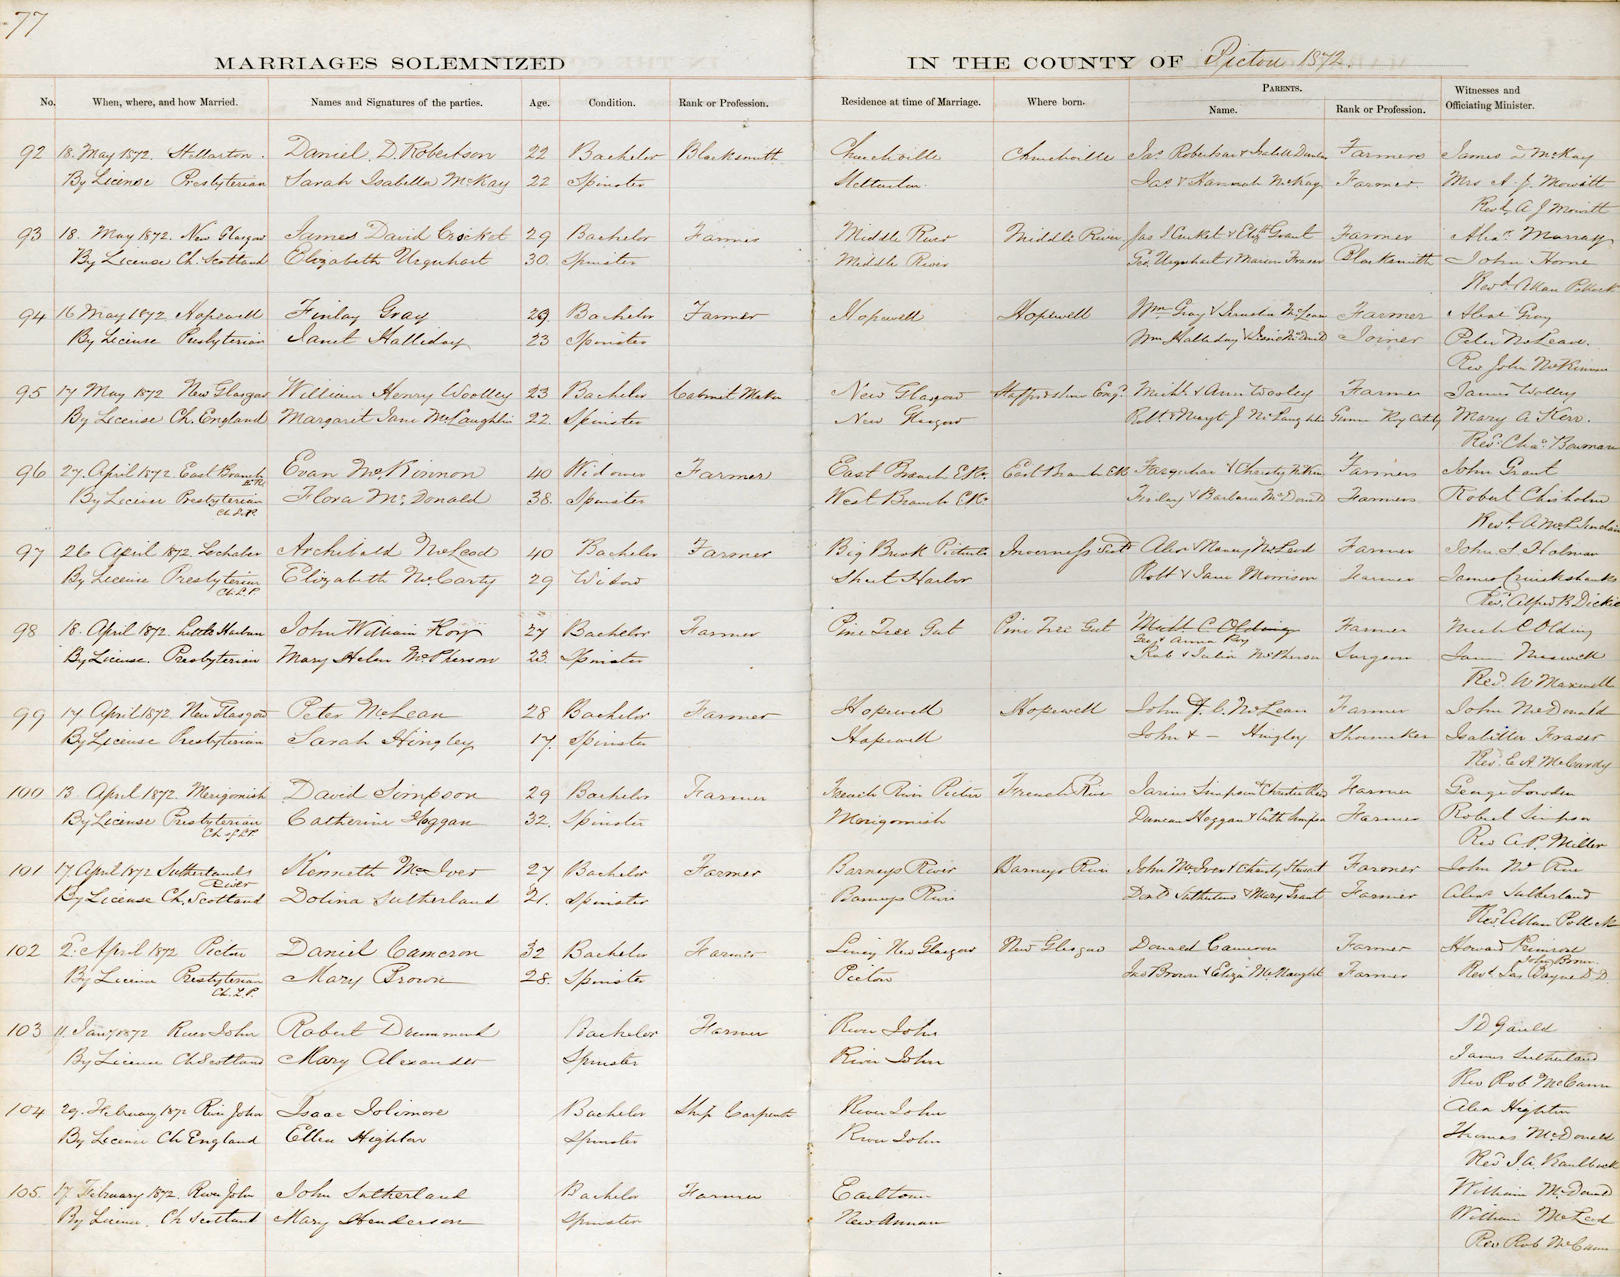 77
MARRIAGES SOLEMNIZED IN THE COUNTY OF Pictou 1872.
No. When, where, and how Married. Names and Signatures of the parties. Age. Condition. Rank or Profession. Residence at time of Marriage. Where born. PARENTS. Name. Rank or Profession. Witnesses and Officiating Minister.
92 18. May 1872. Stellarton. Daniel D. Robertson 22 Bachelor Blacksmith Churchville Churchville Jas Robertson & Isabella Farmers James D McKay
By License Presbyterian Sarah Isabella McKay 22 Spinster Stellarton. Jas & Hannah McKay Farmer. Mrs A. J. Mowitt
Revd A J Mowitt
93 18. May 1872. New Glasgow James David Crocket 29 Bachelor Farmer Middle River Middle River Jas & Elizth Grant Farmer Alexr Murray
By License Ch. Scotland Elizabeth Urquhart 30. Spinster Middle River Geo. Urquhart & Marion Fraser Blacksmith John Horne
Revd Allan Pollock
94 16 May 1872 Hopewell Finlay Gray 29 Bachelor Farmer Hopewell Hopewell Wm Gray & McLean Farmer Alexr Gray
By License Presbyterian Janet Halliday 23 Spinster Wm Halliday & Joiner Peter McLean.
Rev John McKinnon
95 17 May 1872 New Glasgow William Henry Woolley 23 Bachelor Cabinet Maker New Glasgow Staffordshire Engd Michl & Ann Wooley Farmer James Wolley
By License Ch. England Margaret Jane McLaughlin 22. Spinster New Glasgow Robt & Margt J McLaughlin Mary A Kerr.
Revd Chas Bowman
96 27. April 1872 East Branch E.R. Evan McKinnon 40 Widower Farmer East Branch E.R. East Branch ER Farquhar & Christy Farmers John Grant
By License Presbyterian Ch. L.P. Flora McDonald 38. Spinster West Branch E.R. Finlay & Barbara McDonald Farmers Robert Chisholm
Revd A McL Sinclair
97 26 April 1872 Lochaber Archibald McLeod 40 Bachelor Farmer Big Brook Pictou Inverness Scotd Alexr & Nancy McLeod Farmer John S Holman
By License Presbyterian Ch. L.P. Elizabeth McCarty 29 Widow Sheet Harbor Robt & Jane Morrison Farmer James Cruickshanks
Revd Alfred B Dickie
98 18. April 1872. Little Harbour John William Roy 27 Bachelor Farmer Pine Tree Gut Pine Tree Gut Michl C Olding Geo & Anna Roy Farmer Mich C Olding
By License. Presbyterian Mary Helen McPherson 23. Spinster Rob & Julia McPherson Surgeon James
Revd. W Maxwell
99 17 April 1872. New Glasgow Peter McLean 28 Bachelor Farmer Hopewell Hopewell John & C. McLean Farmer John McDonald
By License Presbyterian Sarah Hingley 17. Spinster Hopewell John & — Hingley Shoemaker Isabella Fraser
Revd. E A McCurdy
100 13 April 1872. Merigomish David Simpson 29 Bachelor Farmer French River Pictou French River Simpson & Christie Farmer George Lowden
By License Presbyterian Ch of L.P. Catherine Hoggan 32. Spinster Merigomish Duncan Hoggan & Cath Simpson Farmer Robert Simpson
Rev A.P. Miller
101 17 April 1872 Sutherlands River Kenneth McIver 27 Bachelor Farmer Barneys River Barneys River John McIver & Christy Stewart Farmer John
By License Ch. Scotland Dolina Sutherland 21. Spinster Barneys River Sutherland & Mary Grant Farmer Alexr Sutherland
Revd Allan Pollock
102 2. April 1872 Pictou Daniel Cameron 32 Bachelor Farmer Living New Glasgow New Glasgow Donald Cameron Farmer Howard Primrose
John Brown.
By License Presbyterian Ch. L.P. Mary Brown 28. Spinster Pictou Jas Brown & Eliza McNaught Farmer Revd. Jas Bayne D.D.
103 11. Jany 1872 River John Robert Drummond Bachelor Farmer River John J D Gauld
By License Ch Scotland Mary Alexander Spinster River John James Sutherland
Rev Rob McCunn
104 29. February 1872 River John Isaac Tolimore Bachelor Ship Carpenter River John Alex Highton
By License Ch England Ellen Highton Spinster River John Thomas McDonald
Revd J.A. Kaulback
105. 17. February 1872. River John John Sutherland Bachelor Farmer Earltown William McDonald
By License. Ch Scotland Mary Henderson Spinster New Annan William McLeod
Rev Rob McCunn